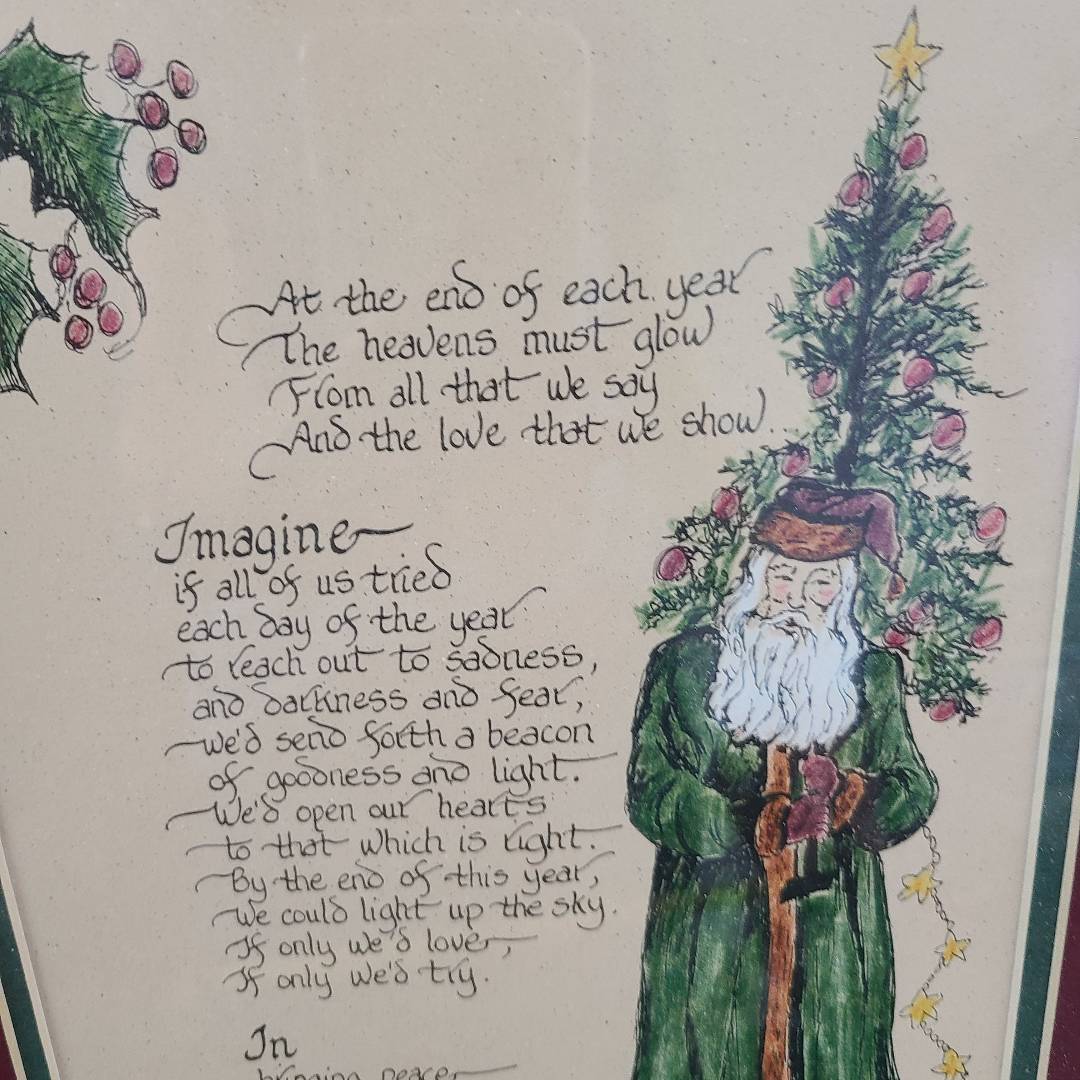 At the end of each year
The heavens must glow
From all that we say
And the love that we show...
Imagine
if all of us tried
each day of the year
to reach out to sadness,
and darkness and fear,
we'd send forth a beacon
of goodness and light.
We'd open our hearts
to that which is right.
By the end of this year,
We could light up the sky.
If only we'd love,
If only we'd try.
In
bringing peace